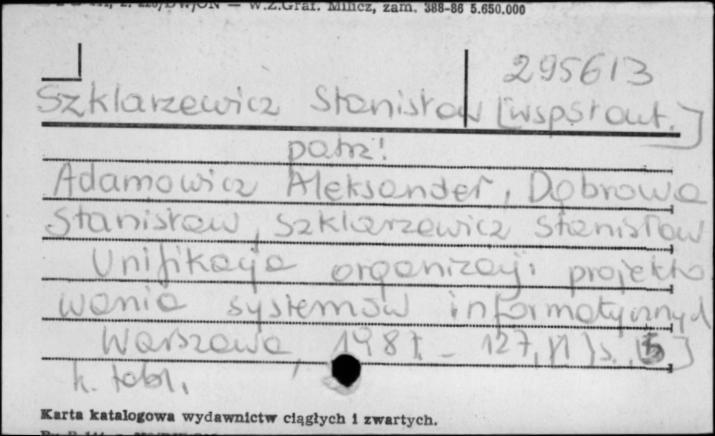 W.Z.Graf. Milicz, zam. 388-86 5.650.000
295613
Szklarzewicz Stanisław [współaut.]
patrz:
Adamowicz Aleksander, Dąbrowa
Stanisław, Szklarzewicz Stanisław
Unifikacja organizacji projekto
wania systemów informatycznych
Warszawa, 1987. - 127, [1] s. [5]
k. tabl.
Karta katalogowa wydawnictw ciągłych i zwartych.